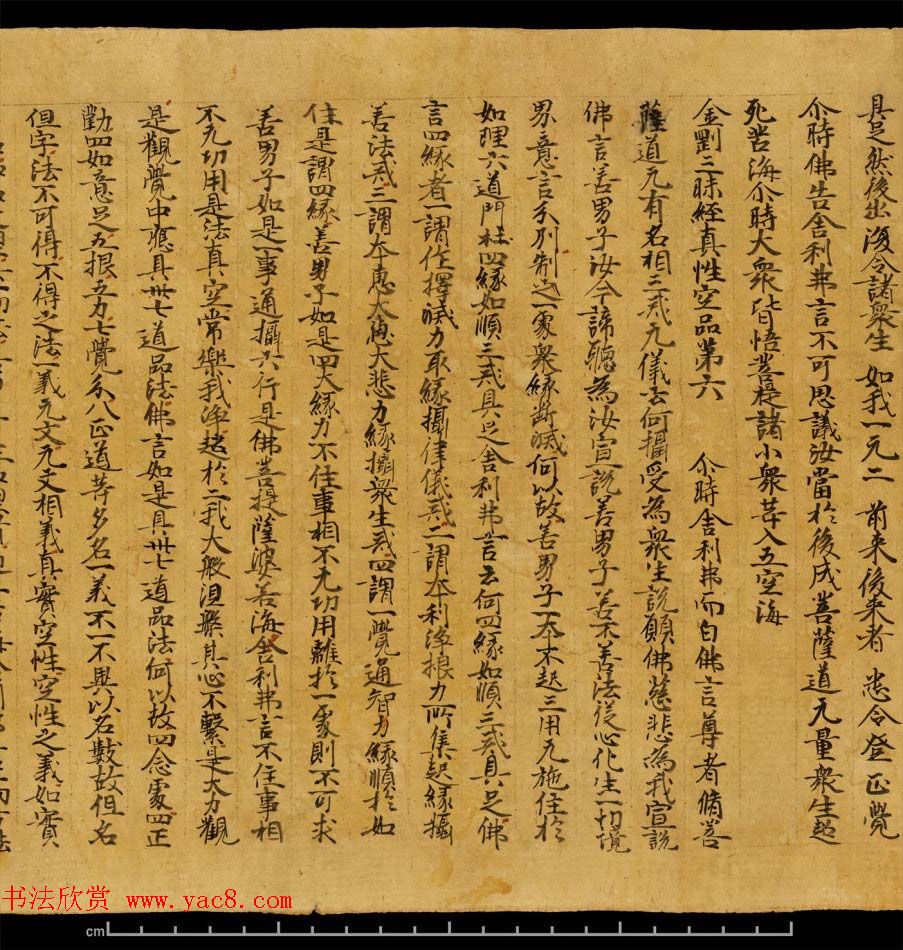 具足然後出復令諸衆生　如我一无二　前来後来者　悉令登正覺
尒時佛告舍利弗言不可思議汝當於後成菩薩道无量衆生超
死苦海尒時大衆皆悟菩提諸小衆等入五空海
金剛三昧經真性空品第六　　尒時舍利弗而白佛言尊者脩菩
薩道无有名相三戒无儀云何攝受為衆生說願佛慈悲為我宣說
佛言善男子汝今諦聽為汝宣說善男子善不善法從心化生一切境
界意言分別制之一處衆緣断滅何以故善男子一本不起三用无施住於
如理六道門杜四緣如順三戒具足舍利弗言云何四緣如順三戒具足佛
言四緣者一謂作擇滅力取緣攝律儀戒二謂本利淨根力所集起緣攝
善法戒三謂本惠大慈大悲力緣攝衆生戒四謂一覺通智力緣順於如
住是謂四緣善男子如是四大緣力不住事相不无功用離於一處則不可求
善男子如是一事通攝六行是佛菩提薩婆若海舍利弗言不住事相
不无功用是法真空常樂我淨超於二我大般涅槃其心不繫是大力觀
是觀覺中應具卅七道品法佛言如是具卅七道品法何以故四念處四正
勤四如意足五根五力七覺分八正道等多名一義不一不異以名數故但名
但字法不可得不得之法一義无文无文相義真實空性空性之義如實
书法欣赏 www.yac8.com
cm